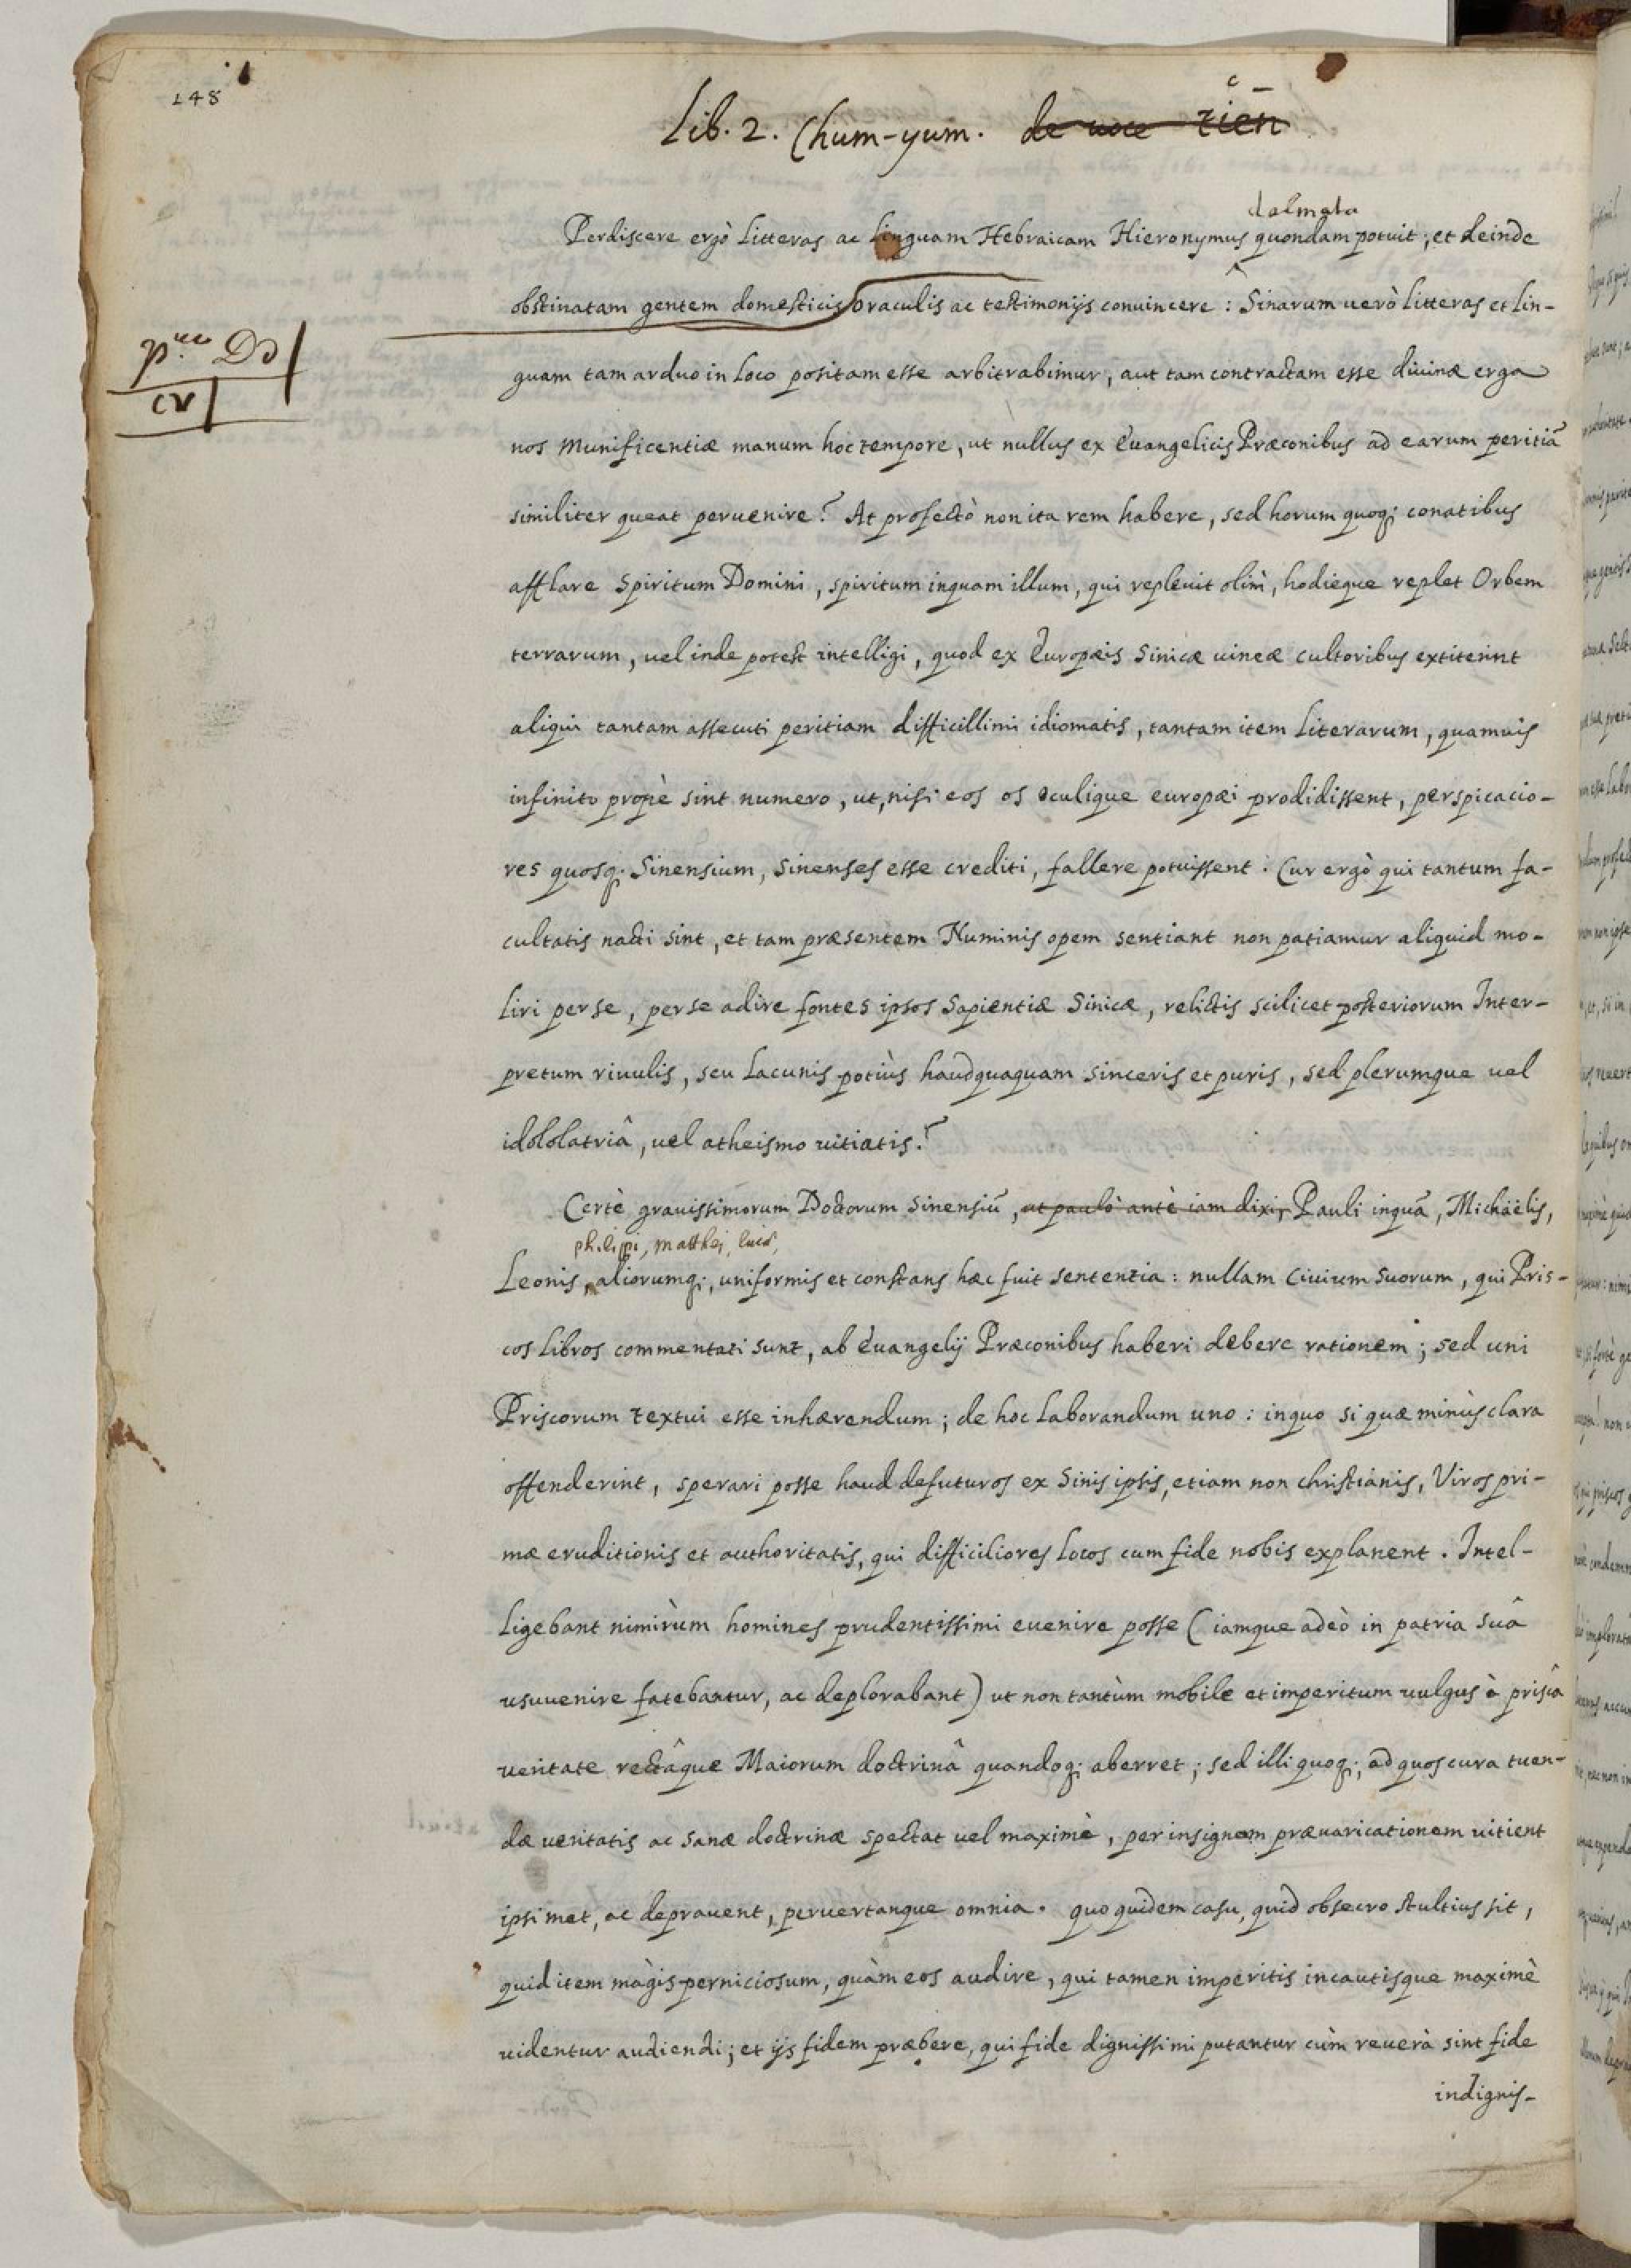 148
Lib. 2. Chum-yum. de uoce tien
dalmata
Perdiscere ergò Litteras ac Linguam Hebraicam Hieronymus quondam potuit; et deinde
obstinatam gentem domesticis oraculis ac testimonijs conuincere: Sinarum uerò Litteras et Lin-
guam tam arduo in Loco positam esse arbitrabimur, aut tam contractam esse diuinæ erga
nos Munificentiæ manum hoc tempore, ut nullus ex Euangelicis Præconibus ad earum peritiā
similiter queat peruenire? At profectò non ita rem habere, sed horum quoq; conatibus
afflare Spiritum Domini, spiritum inquam illum, qui repleuit olim, hodieque replet Orbem
terrarum, uel inde potest intelligi, quod ex Europæis Sinicæ uineæ cultoribus extiterint
aliqui tantam assecuti peritiam difficillimi idiomatis, tantam item Literarum, quamuis
infinito propè sint numero, ut, nisi eos os oculique europæi prodidissent, perspicacio-
res quosq; Sinensium, Sinenses esse crediti, fallere potuissent. Cur ergò qui tantum fa-
cultatis nacti sint, et tam præsentem Numinis opem sentiant non patiamur aliquid mo-
liri per se, per se adire fontes ipsos Sapientiæ Sinicæ, relictis scilicet posteriorum Inter-
pretum riuulis, seu Lacunis potiùs haudquaquam sinceris et puris, sed plerumque uel
idololatriâ, uel atheismo uitiatis?
Certè grauissimorum Doctorum Sinensiū, ut paulò antè iam dixi, Pauli inquā, Michaëlis,
philippi, matthæi, lucæ,
Leonis, aliorumq;, uniformis et constans hæc fuit sententia: nullam Ciuium Suorum, qui Pris-
cos Libros commentati sunt, ab Euangelij Præconibus haberi debere rationem; sed uni
Priscorum textui esse inhærendum; de hoc Laborandum uno: in quo si quæ minùs clara
offenderint, sperari posse haud defuturos ex Sinis ipsis, etiam non christianis, Viros pri-
mæ eruditionis et authoritatis, qui difficiliores Locos cum fide nobis explanent. Intel-
ligebant nimirùm homines prudentissimi euenire posse (iamque adeò in patria suâ
usuuenire fatebantur, ac deplorabant) ut non tantùm mobile et imperitum uulgus à priscâ
ueritate rectâque Maiorum doctrinâ quandoq; aberret; sed illi quoq;, ad quos cura tuen-
dæ ueritatis ac sanæ doctrinæ spectat uel maximè, per insignem præuaricationem uitient
ipsimet, ac deprauent, peruertanque omnia. quo quidem casu, quid obsecro stultius sit,
quid item màgis perniciosum, quàm eos audire, qui tamen imperitis incautisque maximè
uidentur audiendi; et ijs fidem præbere, qui fide dignissimi putantur cùm reuerà sint fide
indignis-